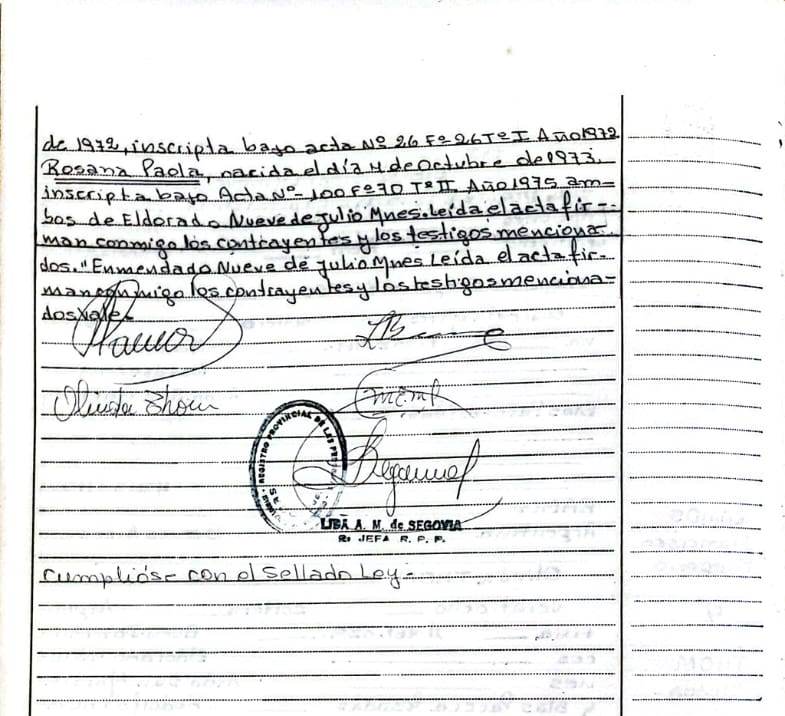 de 1972, inscripta bajo acta Nº 26 Fº 26 Tº I Año 1972
Rosana Paola, nacida el día 4 de Octubre de 1973.
inscripta bajo Acta Nº 100 Fº 70 Tº II Año 1975 am=
bos de Eldorado Nueve de Julio Mnes. Leída el acta fir-
man conmigo los contrayentes y los testigos menciona
dos. "Enmendado Nueve de Julio Mnes Leída el acta fir-
man conmigo los contrayentes y los testigos menciona=
dos Vale.
Olinda Thom
REGISTRO PROVINCIAL DE LAS
LIBA A. M. de SEGOVIA
JEFA R. P. P.
Cumplióse con el Sellado Ley.=